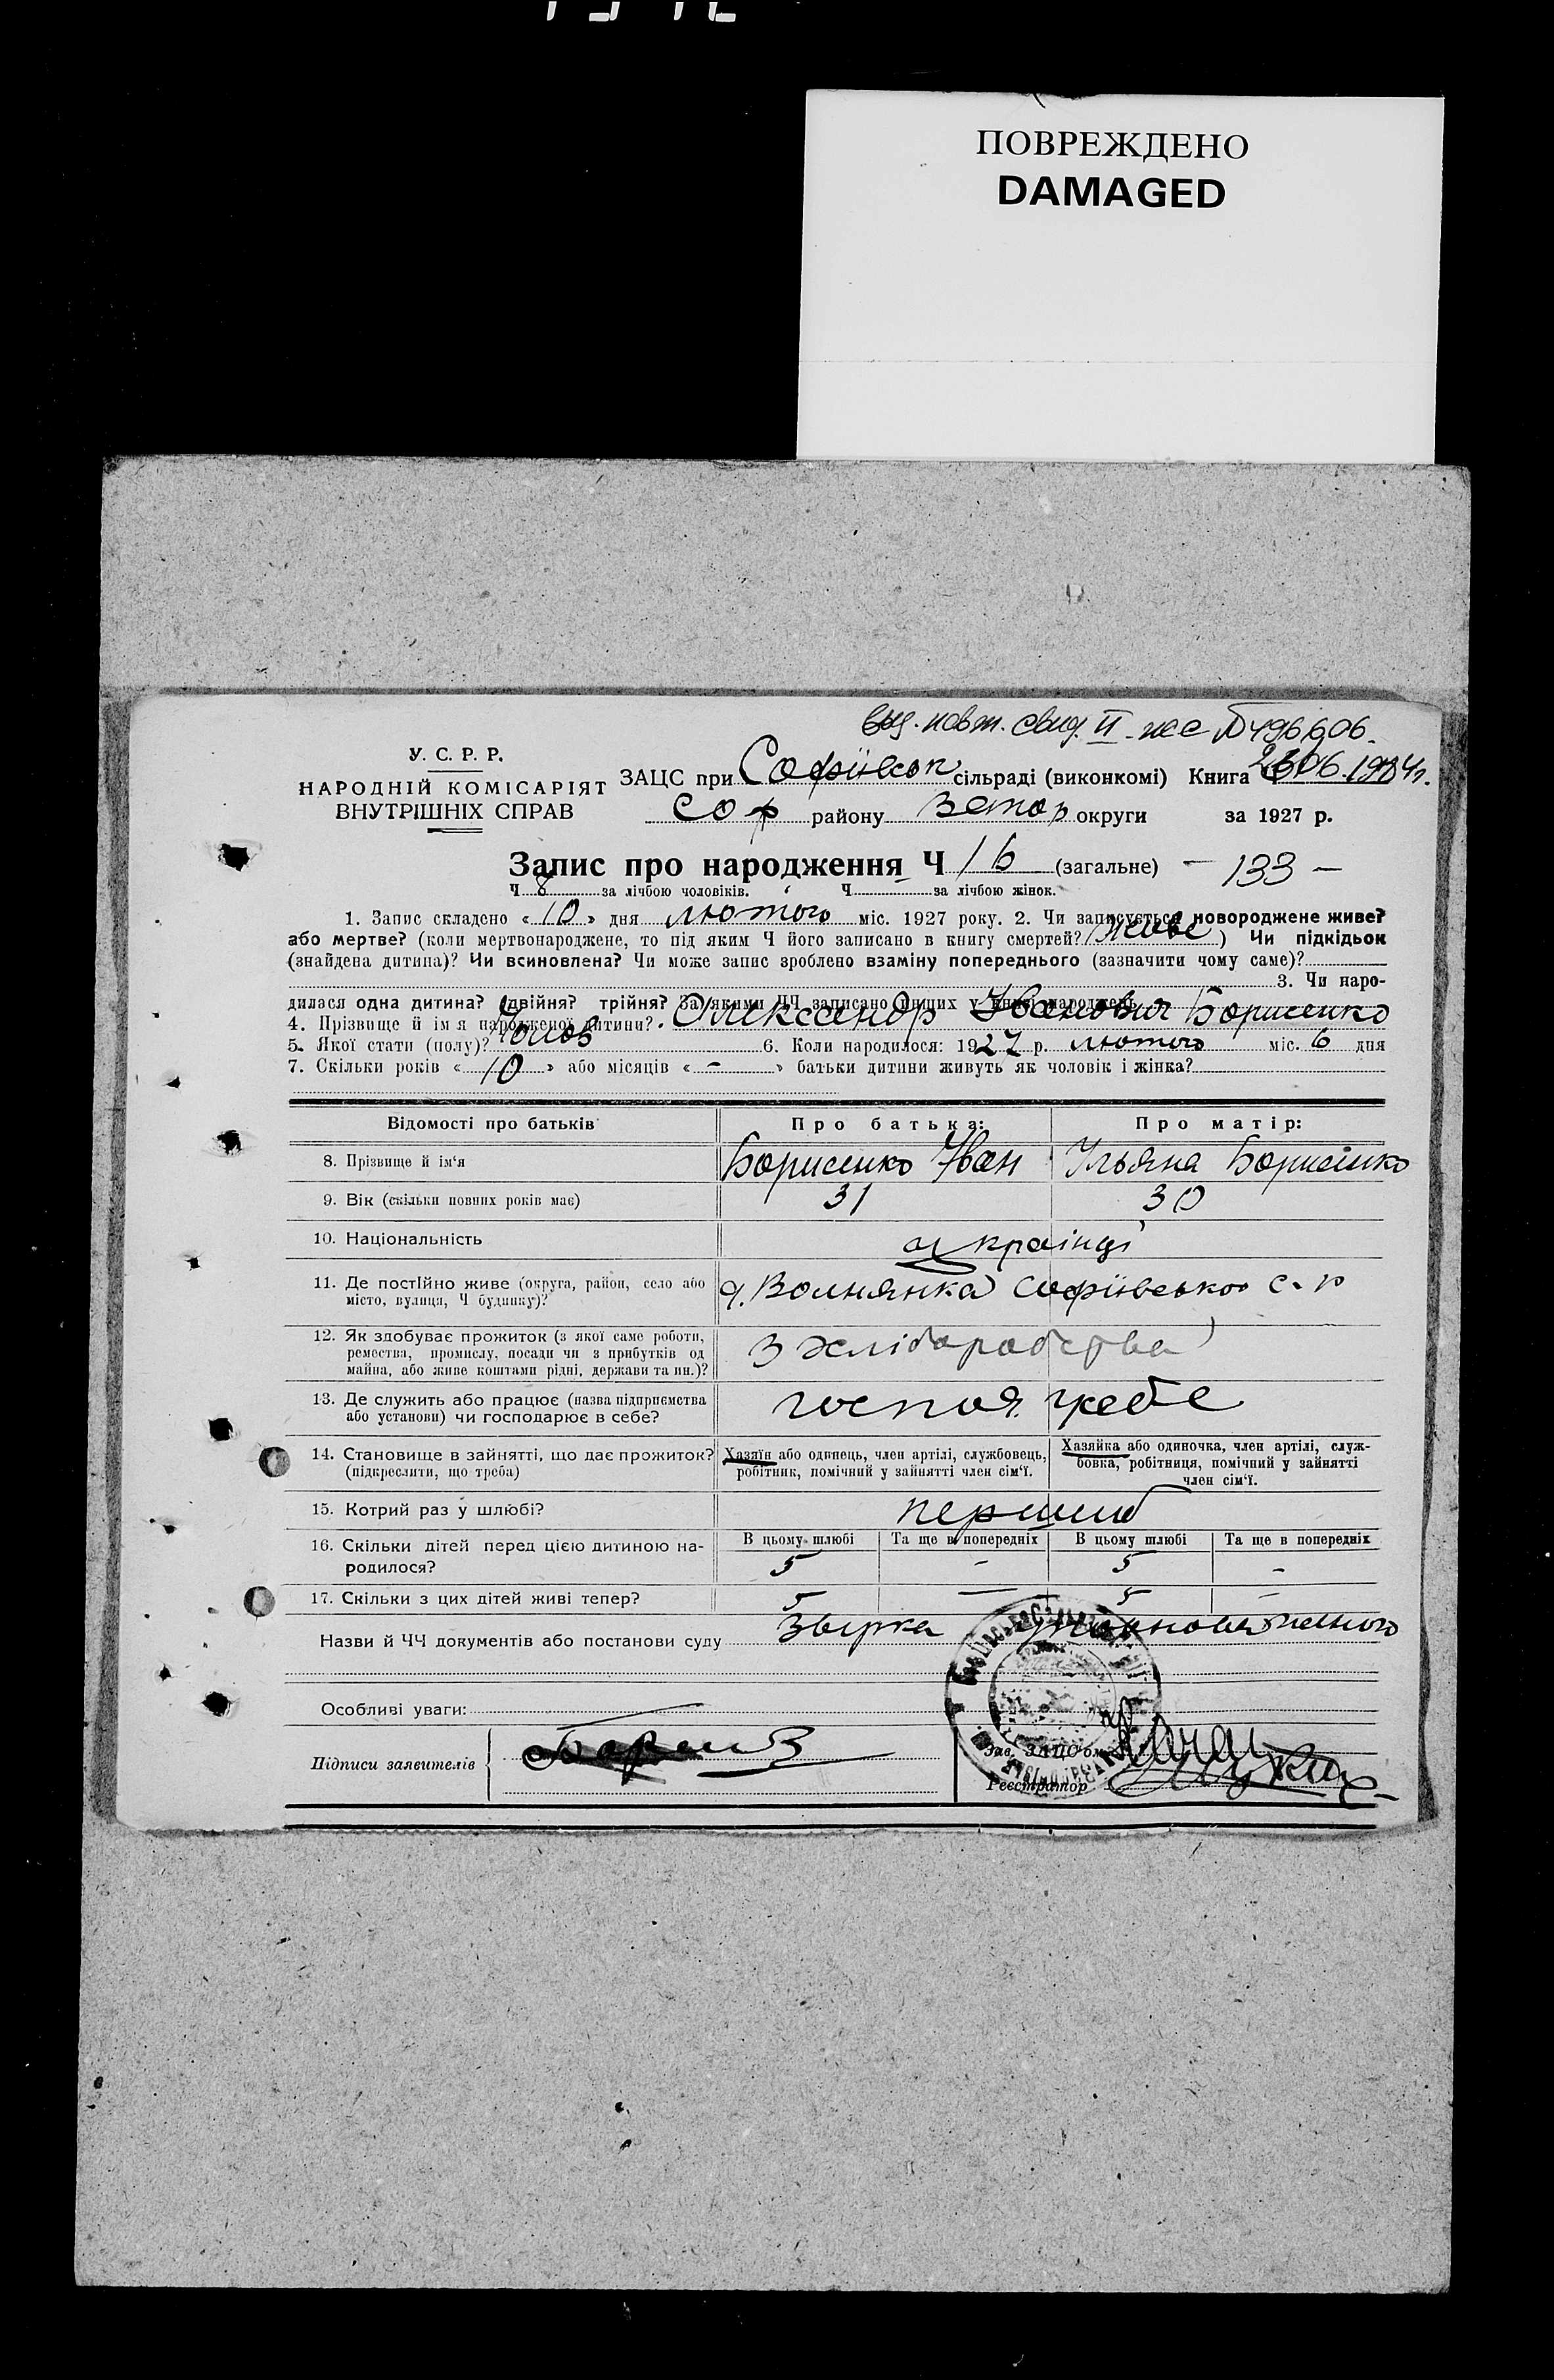 ПОВРЕЖДЕНО
DAMAGED
вид. повт. свид. II-ЖС № 496606
26.06.1984г.
У. С. Р. Р.
НАРОДНІЙ КОМІСАРІЯТ
ВНУТРІШНІХ СПРАВ
ЗАЦС при Софіївськ сільраді (виконкомі) Книга
Соф району Запор округи за 1927 р.
Запис про народження Ч 16 (загальне) – 133 –
Ч 8 за лічбою чоловіків. Ч за лічбою жінок.
1. Запис складено «10» дня лютого міс. 1927 року. 2. Чи записується новороджене живе?
або мертве? (коли мертвонароджене, то під яким Ч його записано в книгу смертей? живе) Чи підкідьок
(знайдена дитина)? Чи всиновлена? Чи може запис зроблено взаміну попереднього (зазначити чому саме)?
3. Чи наро-
дилася одна дитина? двійня? трійня? За якими ЧЧ записано инших у книзі народжень
4. Прізвище й ім'я народженої дитини? Олександр Іванович Борисенко
5. Якої стати (полу)? Чолов 6. Коли народилося: 1927 р. лютого міс. 6 дня
7. Скільки років «10» або місяців «-» батьки дитини живуть як чоловік і жінка?
Відомості про батьків Про батька: Про матір:
8. Прізвище й ім'я Борисенко Іван Ульяна Борисенко
9. Вік (скільки повних років має) 31 30
10. Національність українці
11. Де постійно живе (округа, район, село або
місто, вулиця, Ч будинку)? Волнянка Софіївської с-р
12. Як здобуває прожиток (з якої саме роботи,
ремества, промислу, посади чи з прибутків од
майна, або живе коштами рідні, держави та ин.)? З хліборобства
13. Де служить або працює (назва підприємства
або установи) чи господарює в себе? господ. у себе
14. Становище в зайнятті, що дає прожиток?
(підкреслити, що треба)
Хазяїн або одинець, член артілі, службовець,
робітник, помічний у зайнятті член сім'ї.
Хазяйка або одиночка, член артілі, служ-
бовка, робітниця, помічний у зайнятті
член сім'ї.
15. Котрий раз у шлюбі? перший
16. Скільки дітей перед цією дитиною на-
родилося?
В цьому шлюбі Та ще в попередніх В цьому шлюбі Та ще в попередніх
5 - 5 -
17. Скільки з цих дітей живі тепер? 5 — 5 —
Назви й ЧЧ документів або постанови суду
Особливі уваги:
Підписи заявителів
Зав. ЗАЦС'ом
Реєстратор